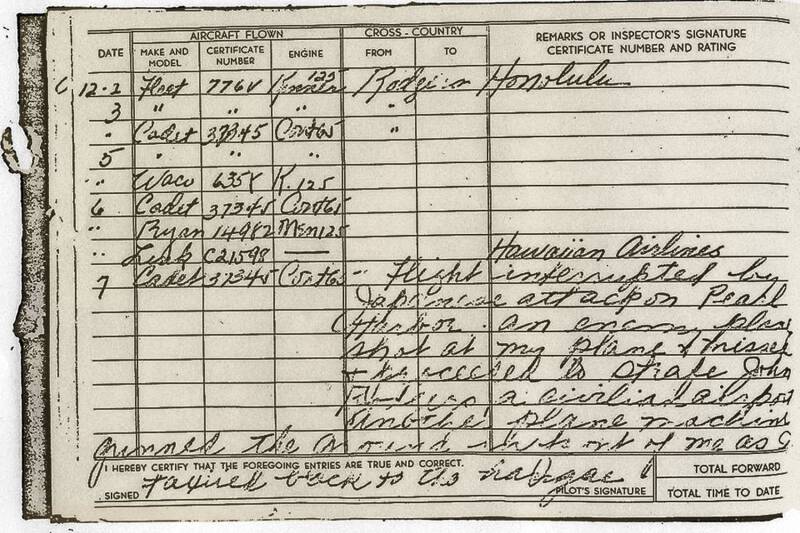 AIRCRAFT FLOWN CROSS - COUNTRY REMARKS OR INSPECTOR'S SIGNATURE
DATE MAKE AND MODEL CERTIFICATE NUMBER ENGINE FROM TO CERTIFICATE NUMBER AND RATING
12-2 Fleet 776V Kinner 125 Rodgers Honolulu
3 " " " "
" Cadet 37345 Cont65 "
5 " " "
" Waco 635Y K.125
6 Cadet 37345 Cont65
" Ryan 14982 Men125
" Link C21598 — Hawaiian Airlines
7 Cadet 37345 Cont65 " Flight interrupted by
Japanese attack on Pearl
Harbor. An enemy plane
shot at my plane & missed
& proceeded to strafe John
Rodgers a civilian airport
Another plane machine
gunned the ground in front of me as I
I HEREBY CERTIFY THAT THE FOREGOING ENTRIES ARE TRUE AND CORRECT. TOTAL FORWARD
SIGNED taxied back to the hangar " PILOT'S SIGNATURE TOTAL TIME TO DATE